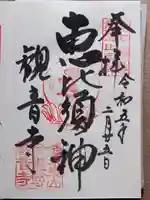 奉拝
令和五年
二月廿五日
恵比須神
観音寺